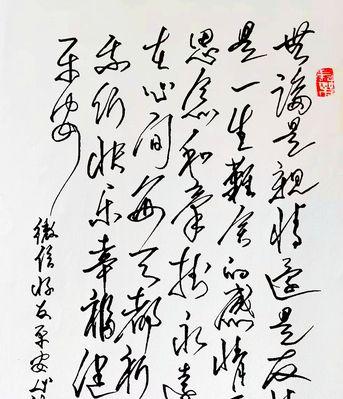 无论是亲情还是友情
是一生难舍的感情
思念和牵挂永远
在心间每天都祈
祈快乐幸福健
平安
微信好友平安